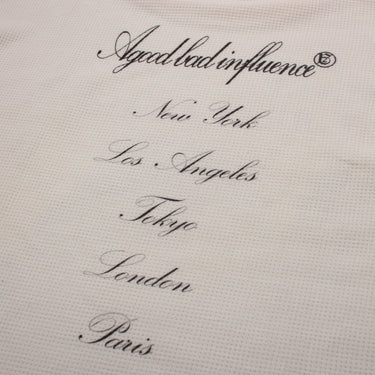 Agoodbadinfluence
New York
Los Angeles
Tokyo
London
Paris